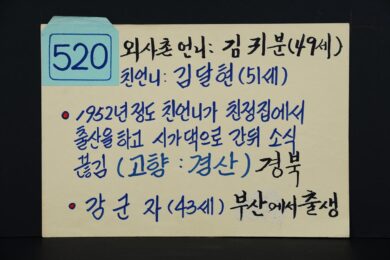 520
외사촌 언니: 김귀분(49세)
친언니: 김달현(51세)
• 1952년 정도 친언니가 친정집에서
출산을 하고 시가댁으로 간뒤 소식
끊김 (고향 : 경산) 경북
• 강군자(43세) 부산에서 출생